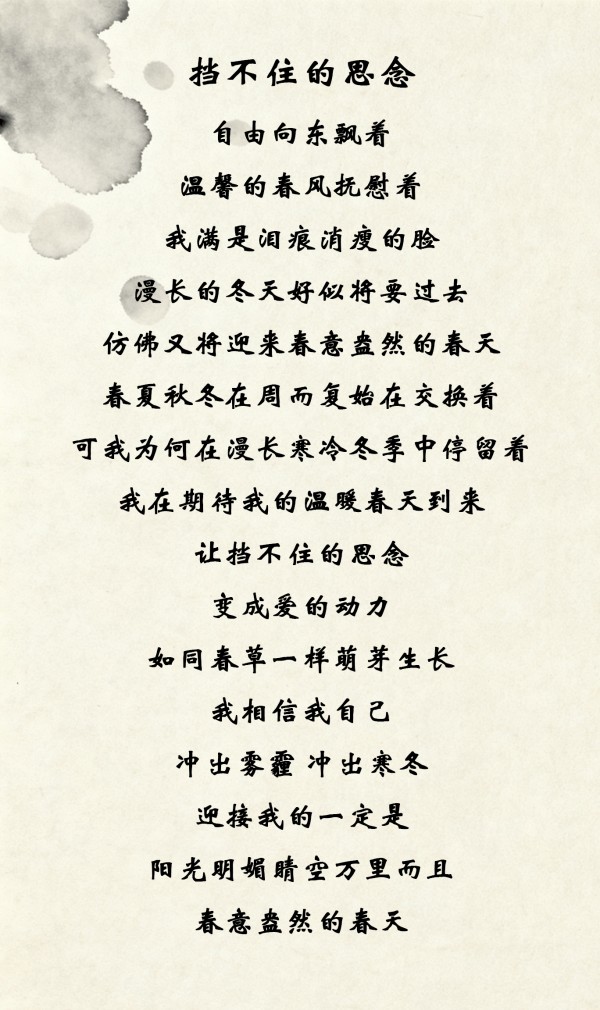 挡不住的思念
自由向东飘着
温馨的春风抚慰着
我满是泪痕消瘦的脸
漫长的冬天好似将要过去
仿佛又将迎来春意盎然的春天
春夏秋冬在周而复始在交换着
可我为何在漫长寒冷冬季中停留着
我在期待我的温暖春天到来
让挡不住的思念
变成爱的动力
如同春草一样萌芽生长
我相信我自己
冲出雾霾 冲出寒冬
迎接我的一定是
阳光明媚晴空万里而且
春意盎然的春天